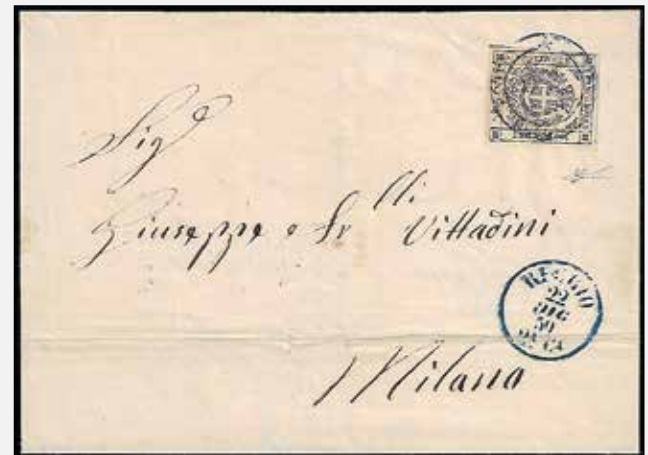 Sig.ri
Giuseppe e Fr.lli Vittadini
REGGIO
22
DIC
59
Milano